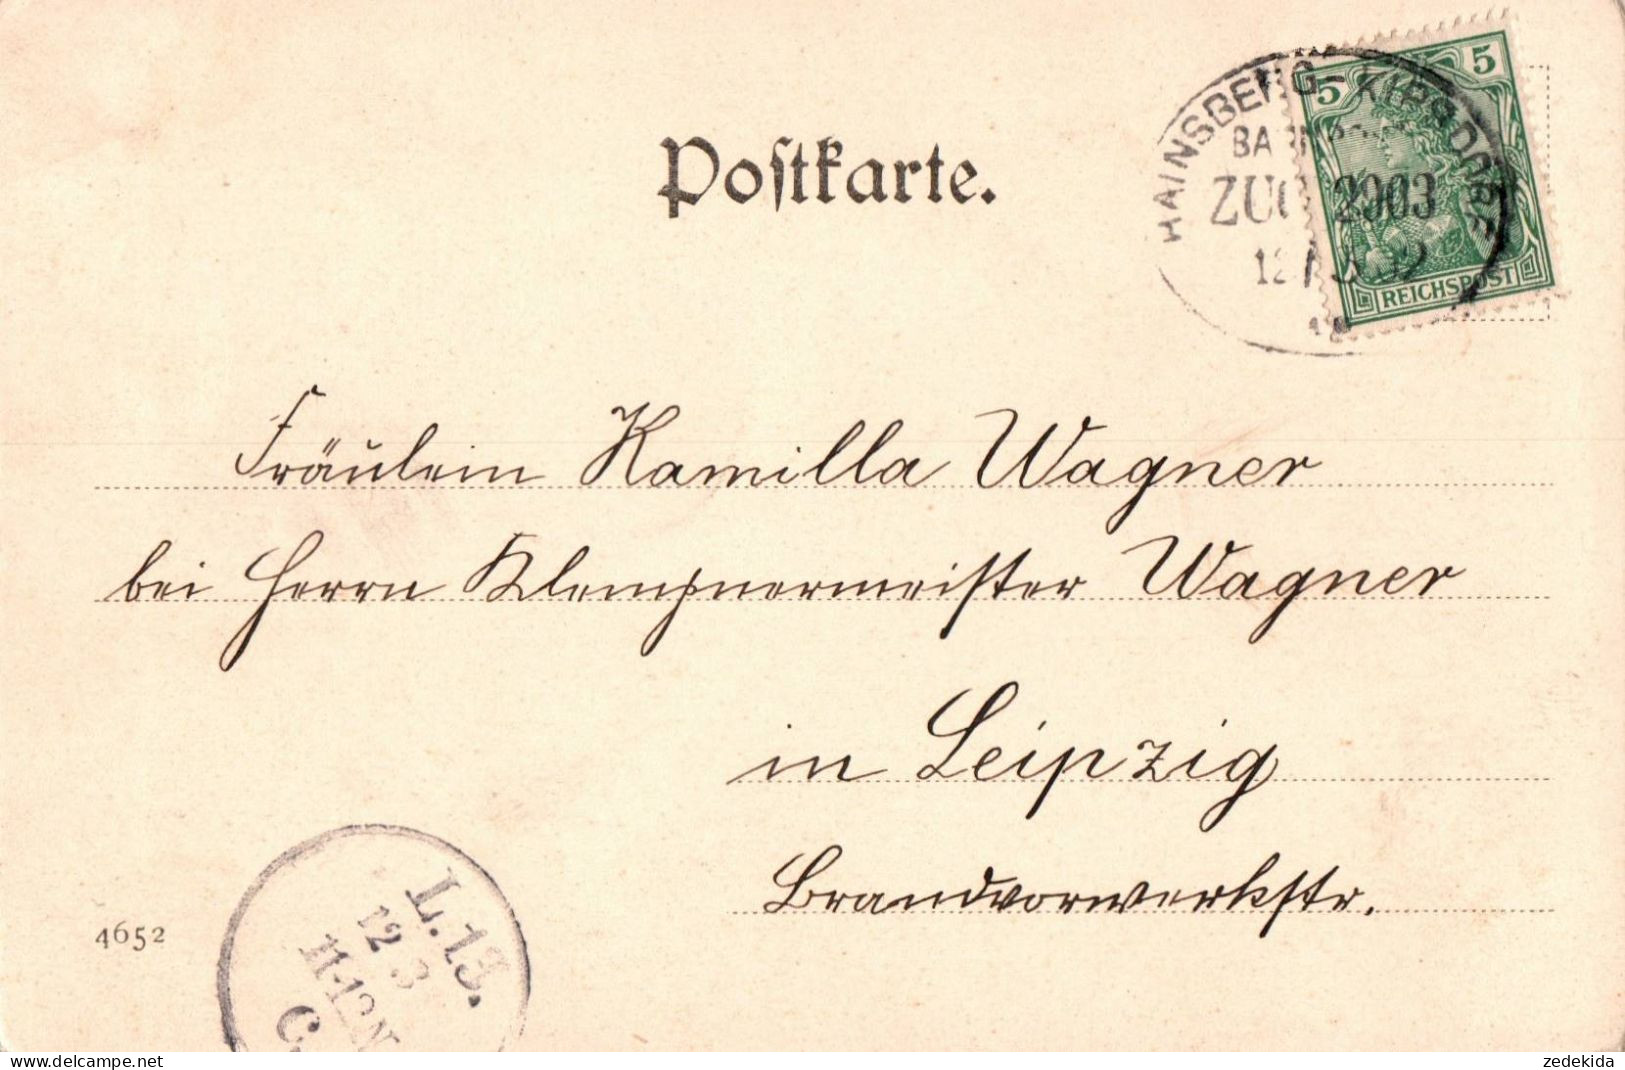 Postkarte.
HAINSBERG-KIPSDORF
ZUG 2903
5 5
REICHSPOST
Fräulein Kamilla Wagner
bei Herrn Klempnermeister Wagner
in Leipzig
Brandvorwerkstr.
4652
L.13.
12 3
11-12N
C.
www.delcampe.net
zedekida